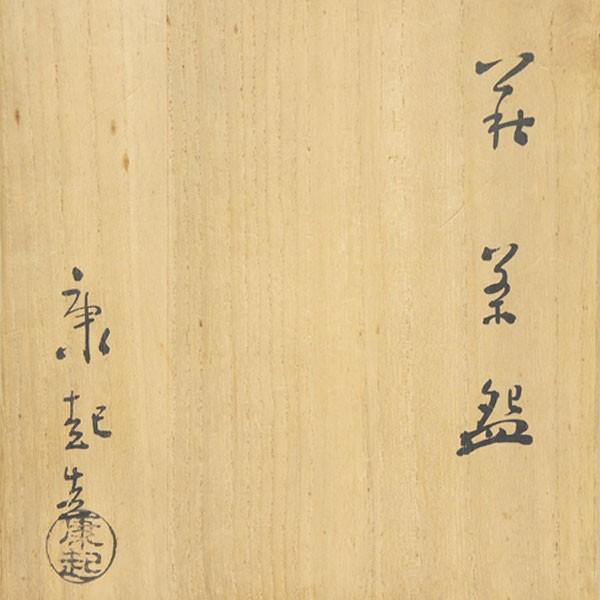 萩茶盌
康起造
康起